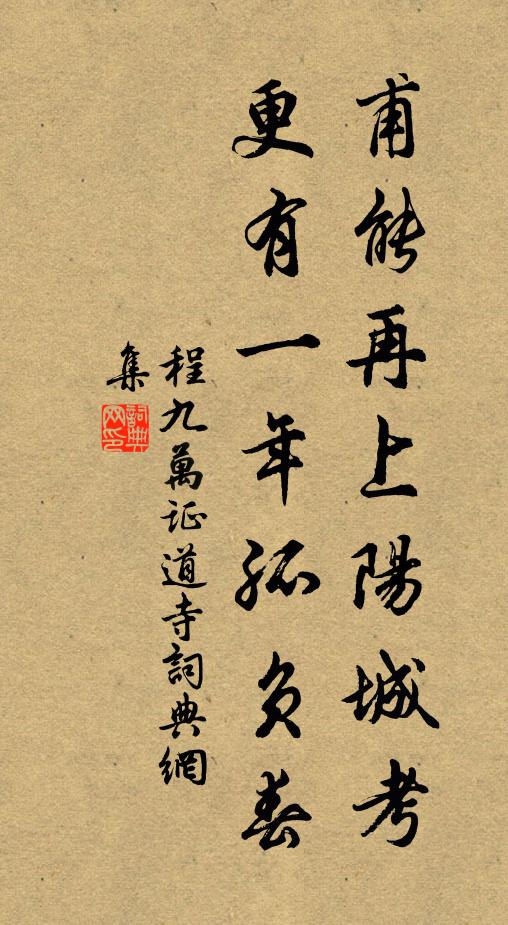 甫能再上陽城考
更有一年孤負春
程九萬証道寺詞典網
集
詞典网印